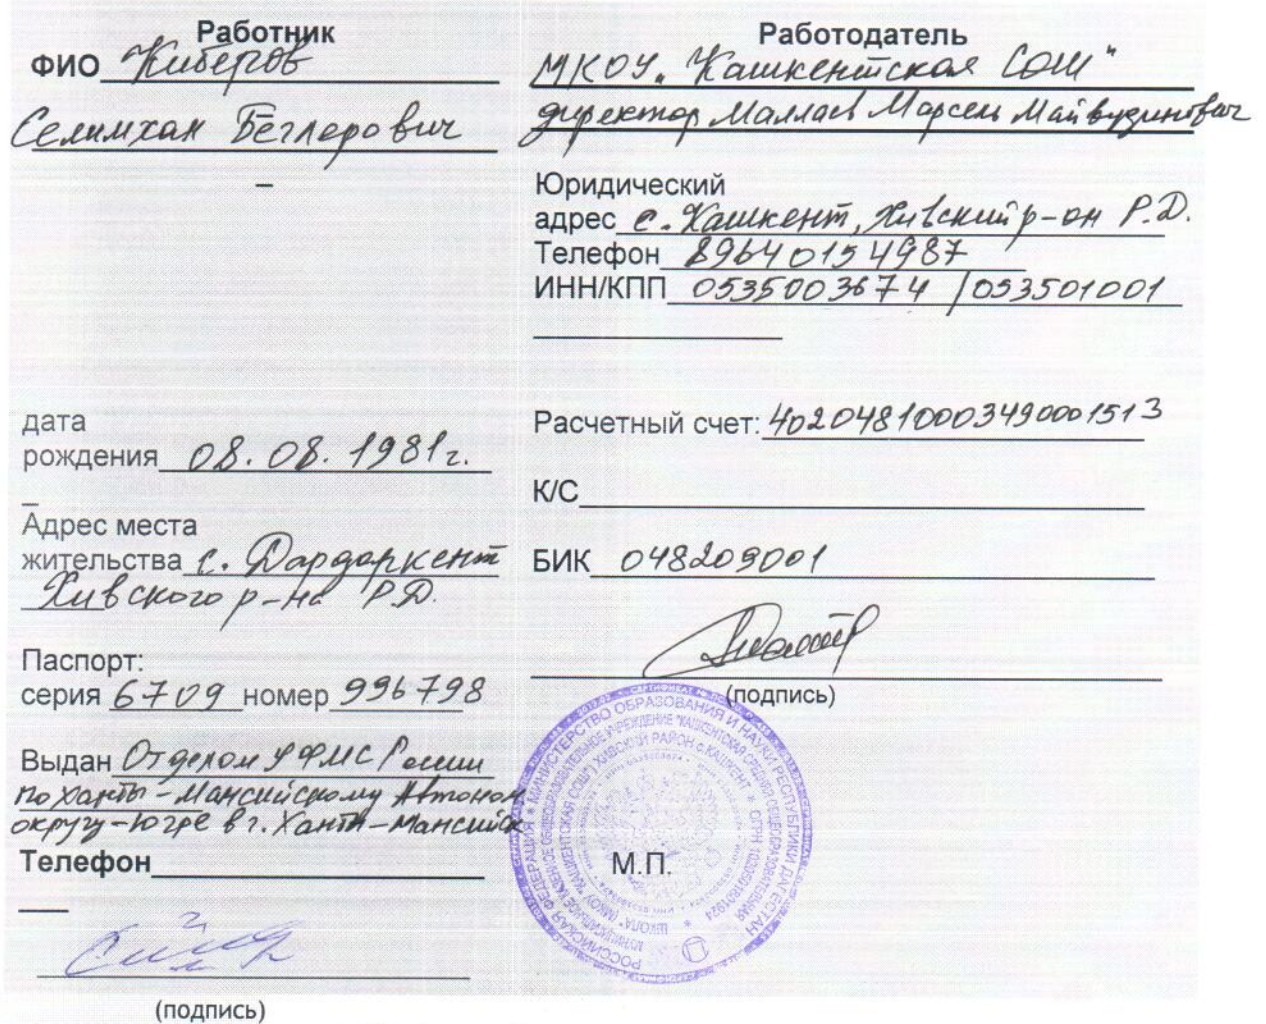 Работник
ФИО Киберов
Селимхан Беглерович
–
дата
рождения 08. 08. 1981г.
–
Адрес места
жительства с. Дардаркент
Хивского р-на Р.Д.
Паспорт:
серия 6709 номер 996798
Выдан Отделом УФМС России
по Ханты-Мансийскому Автоном
округу-Югре в г. Ханты-Мансийск
Телефон
(подпись)
Работодатель
МКОУ „Кашкентская СОШ"
директор Маллаев Марсель Майвудинович
Юридический
адрес с. Кашкент, Хивский р-он Р.Д.
Телефон 89640154987
ИНН/КПП 0535003674 / 053501001
Расчетный счет: 40204810003490001513
К/С
БИК 048209001
(подпись)
М.П.
РОССИЙСКАЯ ФЕДЕРАЦИЯ * МИНИСТЕРСТВО ОБРАЗОВАНИЯ И НАУКИ РЕСПУБЛИКИ ДАГЕСТАН
МУНИЦИПАЛЬНОЕ КАЗЕННОЕ ОБЩЕОБРАЗОВАТЕЛЬНОЕ УЧРЕЖДЕНИЕ "КАШКЕНТСКАЯ СРЕДНЯЯ ОБЩЕОБРАЗОВАТЕЛЬНАЯ ШКОЛА"
(МКОУ "КАШКЕНТСКАЯ СОШ") ХИВСКИЙ РАЙОН с.КАШКЕНТ * ОГРН